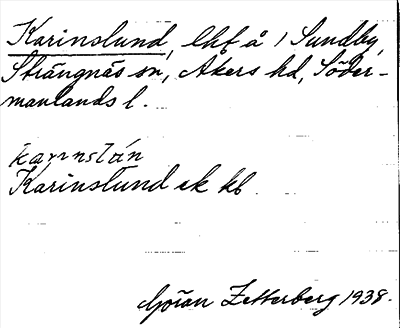 Karinslund, lhf å 1 Sundby,
Strängnäs sn, Åkers hd, Söder-
manlands l.
Karinslund ek kb.
Göran Zetterberg 1938.